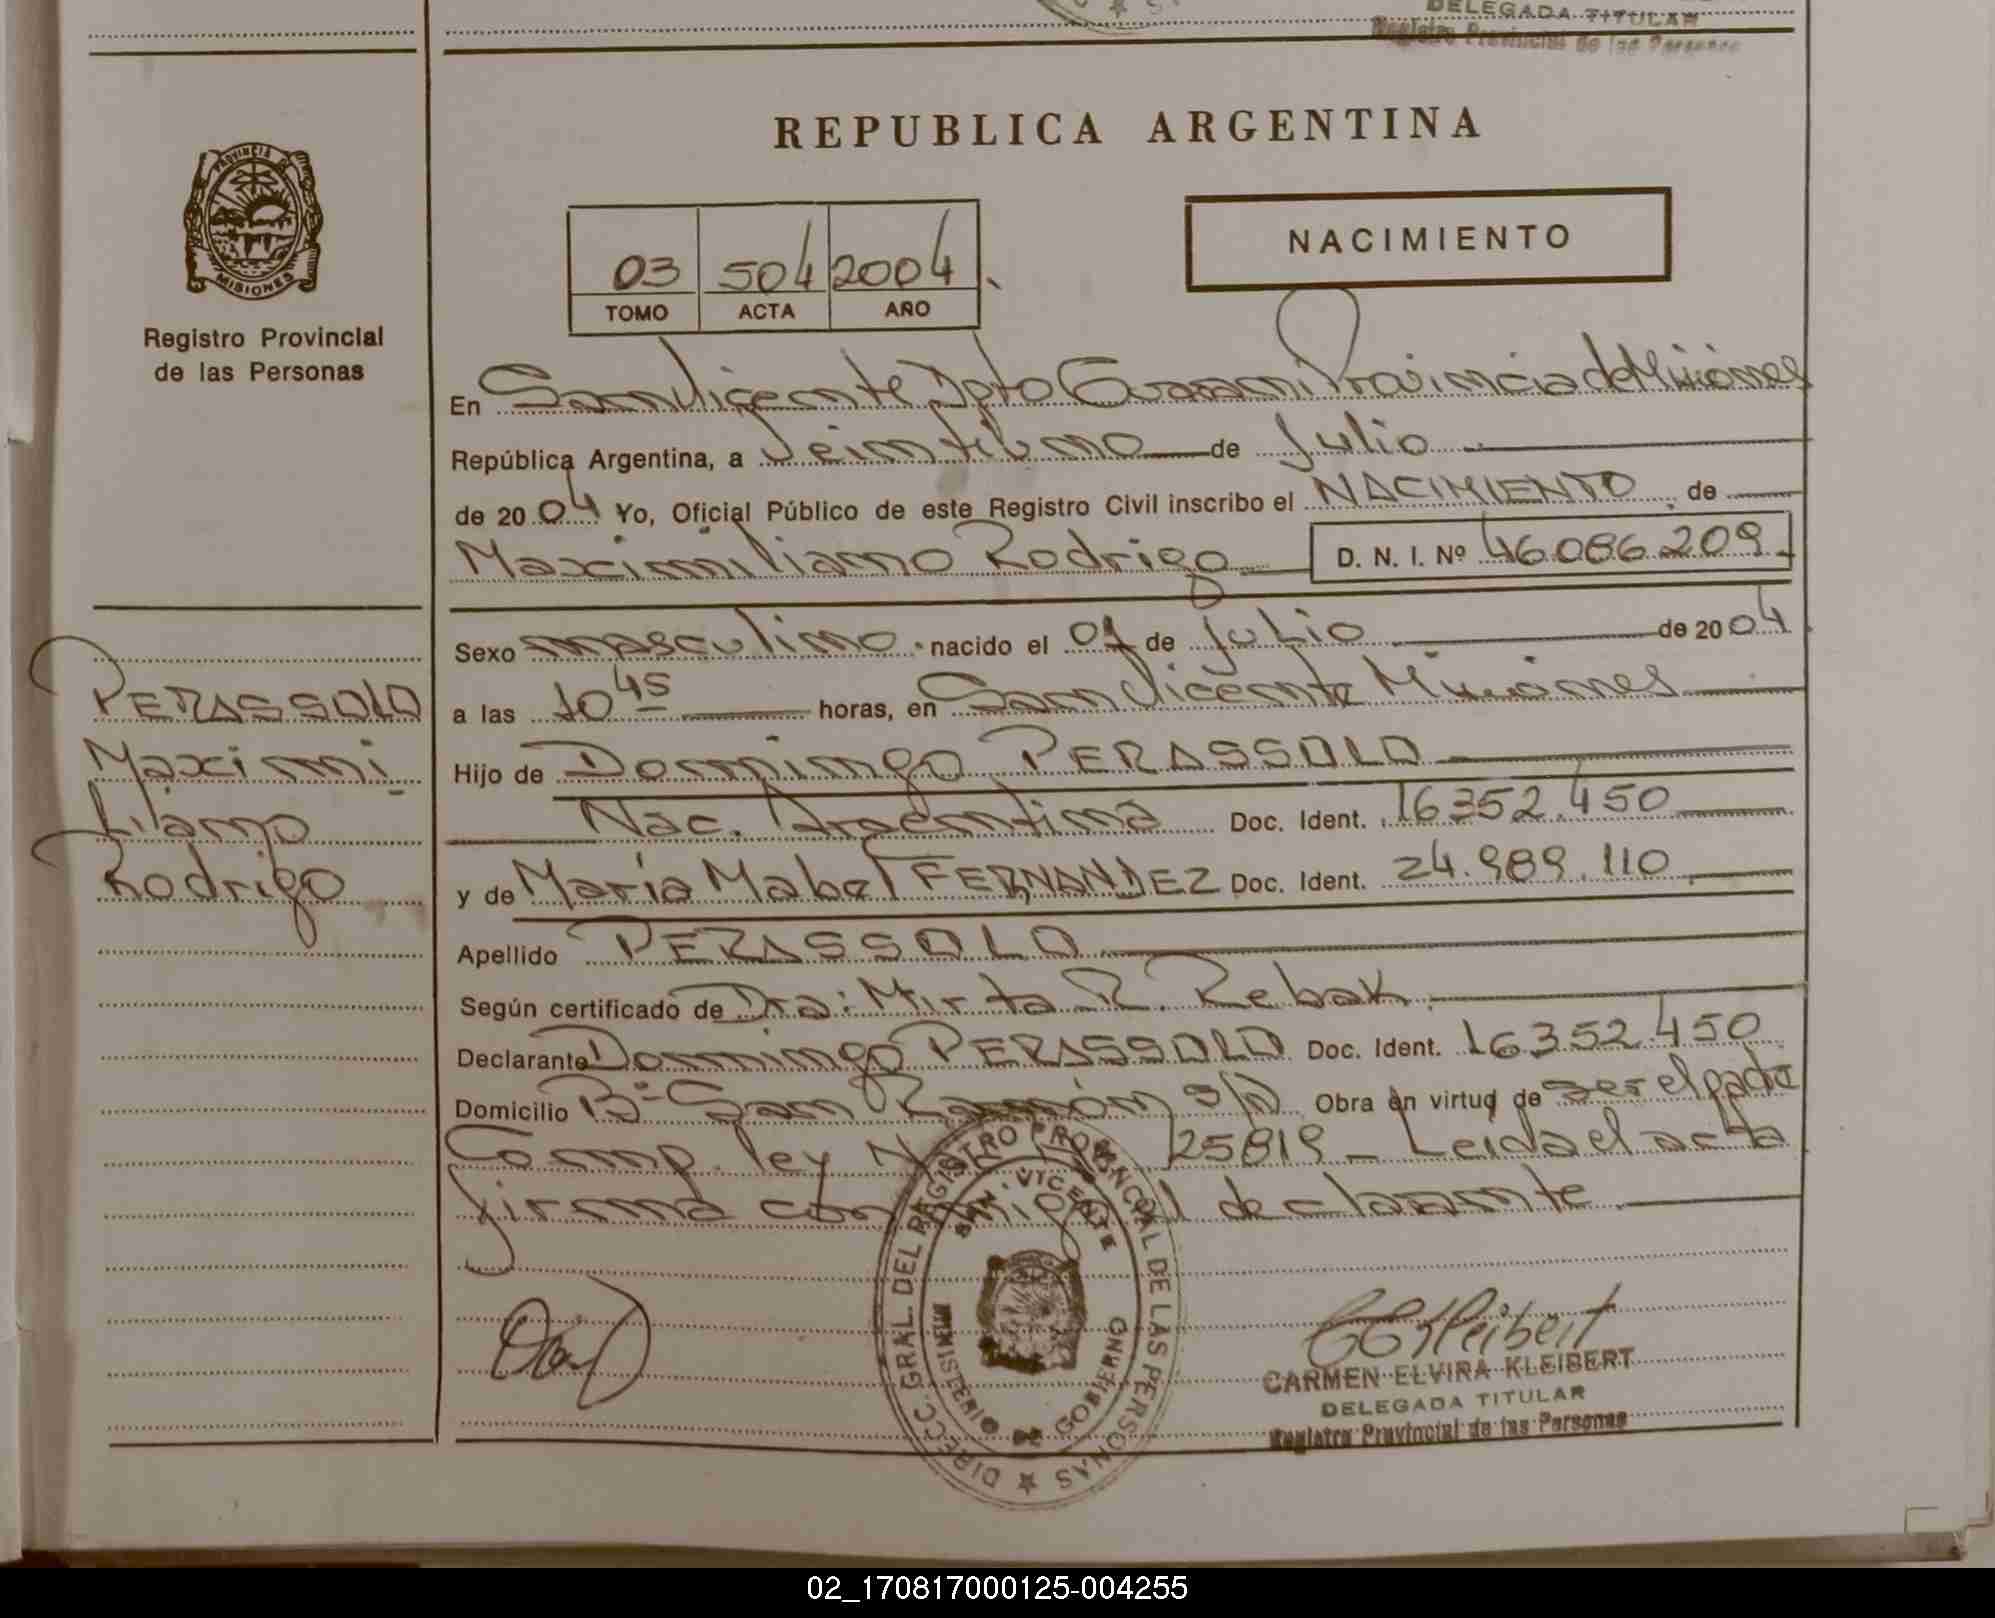 DELEGADA TITULAR
Registro Provincial de las Personas
REPUBLICA ARGENTINA
PROVINCIA DE
MISIONES
Registro Provincial
de las Personas
03 504 2004
TOMO ACTA AÑO
NACIMIENTO
En San Vicente Dpto Guarani Provincia de Misiones
República Argentina, a Veintiuno de Julio
de 2004 Yo, Oficial Público de este Registro Civil inscribo el NACIMIENTO de
Maximiliano Rodrigo D. N. I. Nº 46.086.209
Sexo masculino nacido el 07 de Julio de 2004
a las 10 45 horas, en San Vicente Misiones
Hijo de Domingo PERASSOLO
Nac. Argentina Doc. Ident. 16352.450
y de María Mabel FERNANDEZ Doc. Ident. 24.989.110
Apellido PERASSOLO
Según certificado de Dra: Mirta R. Rebak
Declarante Domingo PERASSOLO Doc. Ident. 16352.450
Domicilio Bº San Ramón S/N Obra en virtud de ser el padre
Comp. ley N 25819 - Leida el acta
firma conmigo el declarante
PERASSOLO
Maximi
liano
Rodrigo
DIRECC. GRAL. DEL REGISTRO PROVINCIAL DE LAS PERSONAS
SAN VICENTE
MINISTERIO DE GOBIERNO
CARMEN ELVIRA KLEIBERT
DELEGADA TITULAR
Registro Provincial de las Personas
02_170817000125-004255